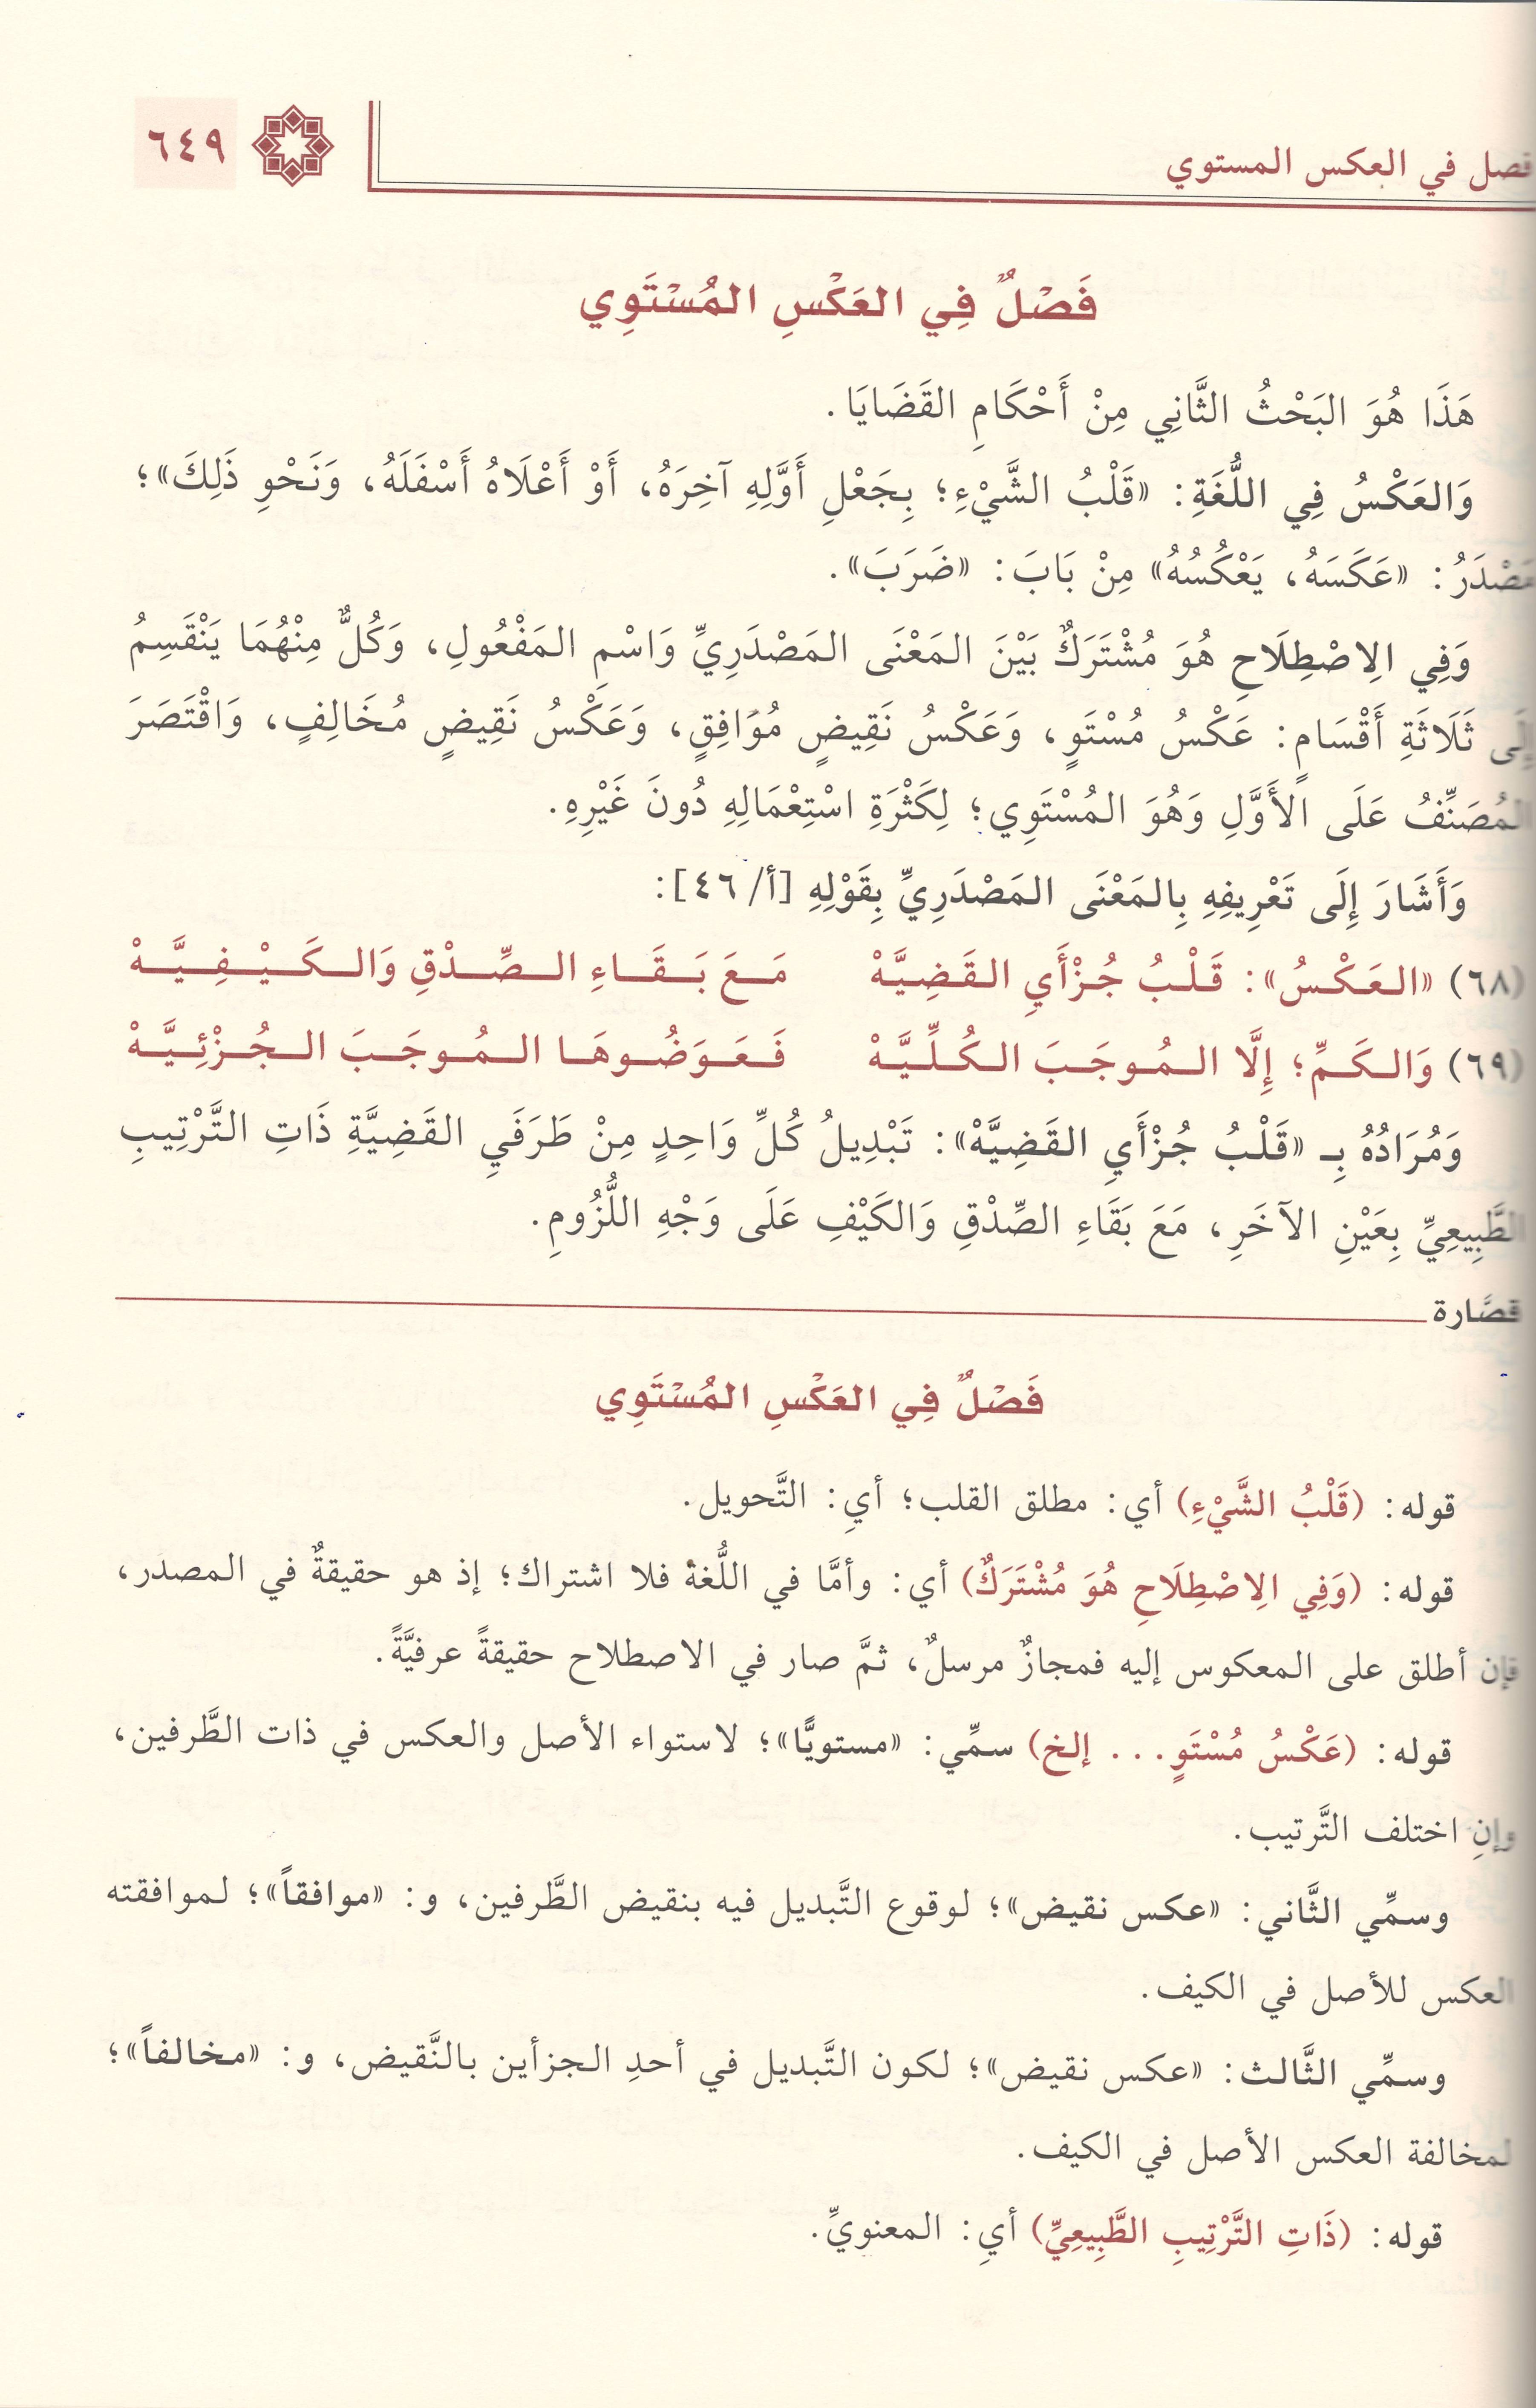 فصل في العكس المستوي
٦٤٩
فَصْلٌ فِي العَكْسِ المُسْتَوِي
هَذَا هُوَ البَحْثُ الثَّانِي مِنْ أَحْكَامِ القَضَايَا.
وَالعَكْسُ فِي اللُّغَةِ: «قَلْبُ الشَّيْءِ؛ بِجَعْلِ أَوَّلِهِ آخِرَهُ، أَوْ أَعْلَاهُ أَسْفَلَهُ، وَنَحْوِ ذَلِكَ»؛
مَصْدَرُ: «عَكَسَهُ، يَعْكُسُهُ» مِنْ بَابَ: «ضَرَبَ».
وَفِي الِاصْطِلَاحِ هُوَ مُشْتَرَكٌ بَيْنَ المَعْنَى المَصْدَرِيِّ وَاسْمِ المَفْعُولِ، وَكُلٌّ مِنْهُمَا يَنْقَسِمُ
إِلَى ثَلَاثَةِ أَقْسَامٍ: عَكْسُ مُسْتَوٍ، وَعَكْسُ نَقِيضٍ مُوَافِقٍ، وَعَكْسُ نَقِيضٍ مُخَالِفٍ، وَاقْتَصَرَ
المُصَنِّفُ عَلَى الأَوَّلِ وَهُوَ المُسْتَوِي؛ لِكَثْرَةِ اسْتِعْمَالِهِ دُونَ غَيْرِهِ.
وَأَشَارَ إِلَى تَعْرِيفِهِ بِالمَعْنَى المَصْدَرِيِّ بِقَوْلِهِ [أ/ ٤٦]:
(٦٨) «العَكْسُ»: قَلْبُ جُزْأَيِ القَضِيَّهْ مَعَ بَقَاءِ الصِّدْقِ وَالكَيْفِيَّهْ
(٦٩) وَالكَمِّ؛ إِلَّا المُوجَبَ الكُلِّيَّهْ فَعَوَضُوهَا المُوجَبَ الجُزْئِيَّهْ
وَمُرَادُهُ بِـ «قَلْبُ جُزْأَيِ القَضِيَّهْ»: تَبْدِيلُ كُلِّ وَاحِدٍ مِنْ طَرَفَيِ القَضِيَّةِ ذَاتِ التَّرْتِيبِ
الطَّبِيعِيِّ بِعَيْنِ الآخَرِ، مَعَ بَقَاءِ الصِّدْقِ وَالكَيْفِ عَلَى وَجْهِ اللُّزُومِ.
قصَّارة
فَصْلٌ فِي العَكْسِ المُسْتَوِي
قوله: (قَلْبُ الشَّيْءِ) أي: مطلق القلب؛ أيِ: التَّحويل.
قوله: (وَفِي الِاصْطِلَاحِ هُوَ مُشْتَرَكٌ) أي: وأمَّا في اللُّغة فلا اشتراك؛ إذ هو حقيقةٌ في المصدر،
فإن أطلق على المعكوس إليه فمجازٌ مرسلٌ، ثمَّ صار في الاصطلاح حقيقةً عرفيَّةً.
قوله: (عَكْسُ مُسْتَوٍ... إلخ) سمِّي: «مستويًّا»؛ لاستواء الأصل والعكس في ذات الطَّرفين،
وإنِ اختلف التَّرتيب.
وسمِّي الثَّاني: «عكس نقيض»؛ لوقوع التَّبديل فيه بنقيض الطَّرفين، و: «موافقاً»؛ لموافقته
العكس للأصل في الكيف.
وسمِّي الثَّالث: «عكس نقيض»؛ لكون التَّبديل في أحدِ الجزأين بالنَّقيض، و: «مخالفاً»؛
لمخالفة العكس الأصل في الكيف.
قوله: (ذَاتِ التَّرْتِيبِ الطَّبِيعِيِّ) أيِ: المعنويِّ.